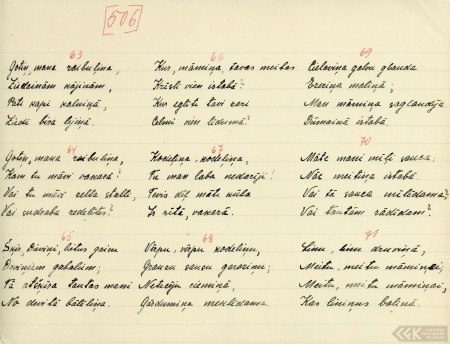 [506]
63
Gotiņ, mana raibuliņa,
Ziedainām kājiņām,
Pati kāpi kalniņā,
Ziedi bira lejiņā.
64
Gotiņ, mana raibuliņa,
Kam tu māvi vakarā?
Vai tu māvi zelta stalli,
Vai sudraba redelītes?
65
Sniedz, Dieviņ, lietus gaisu
Deviņiem gabaliem;
Tā atšķīra tautas mani
No devītā bāleliņa.
66
Kur, māmiņa, tavas meitas
Krēsli vien istabā?
Kur eglīte tavi zari
Celmi vien līdumā?
67
Kodeļiņa, kodeļiņa,
Tu man laba nedarīji!
Tevis dēļ māte kūla
Ir rītā, vakarā.
68
Vērpu, vērpu kodeliņu,
Graužu sausu garoziņu;
Netecēju ciemiņā,
Gardumiņa meklēdama.
69
Cielaviņa galvu glauda
Ezeriņa maliņā;
Man māmiņa saglaudīja
Dūmainā istabā.
70
Māte mani mīļi sauca:
Nāc meitiņa istabā.
Vai tā sauca mīlēdama?
Vai tautām rādīdam?
71
Linu, linu druviņā,
Meitu, meitu māmiņai;
Meitu, meitu māmiņai,
Kas liniņus balinā.